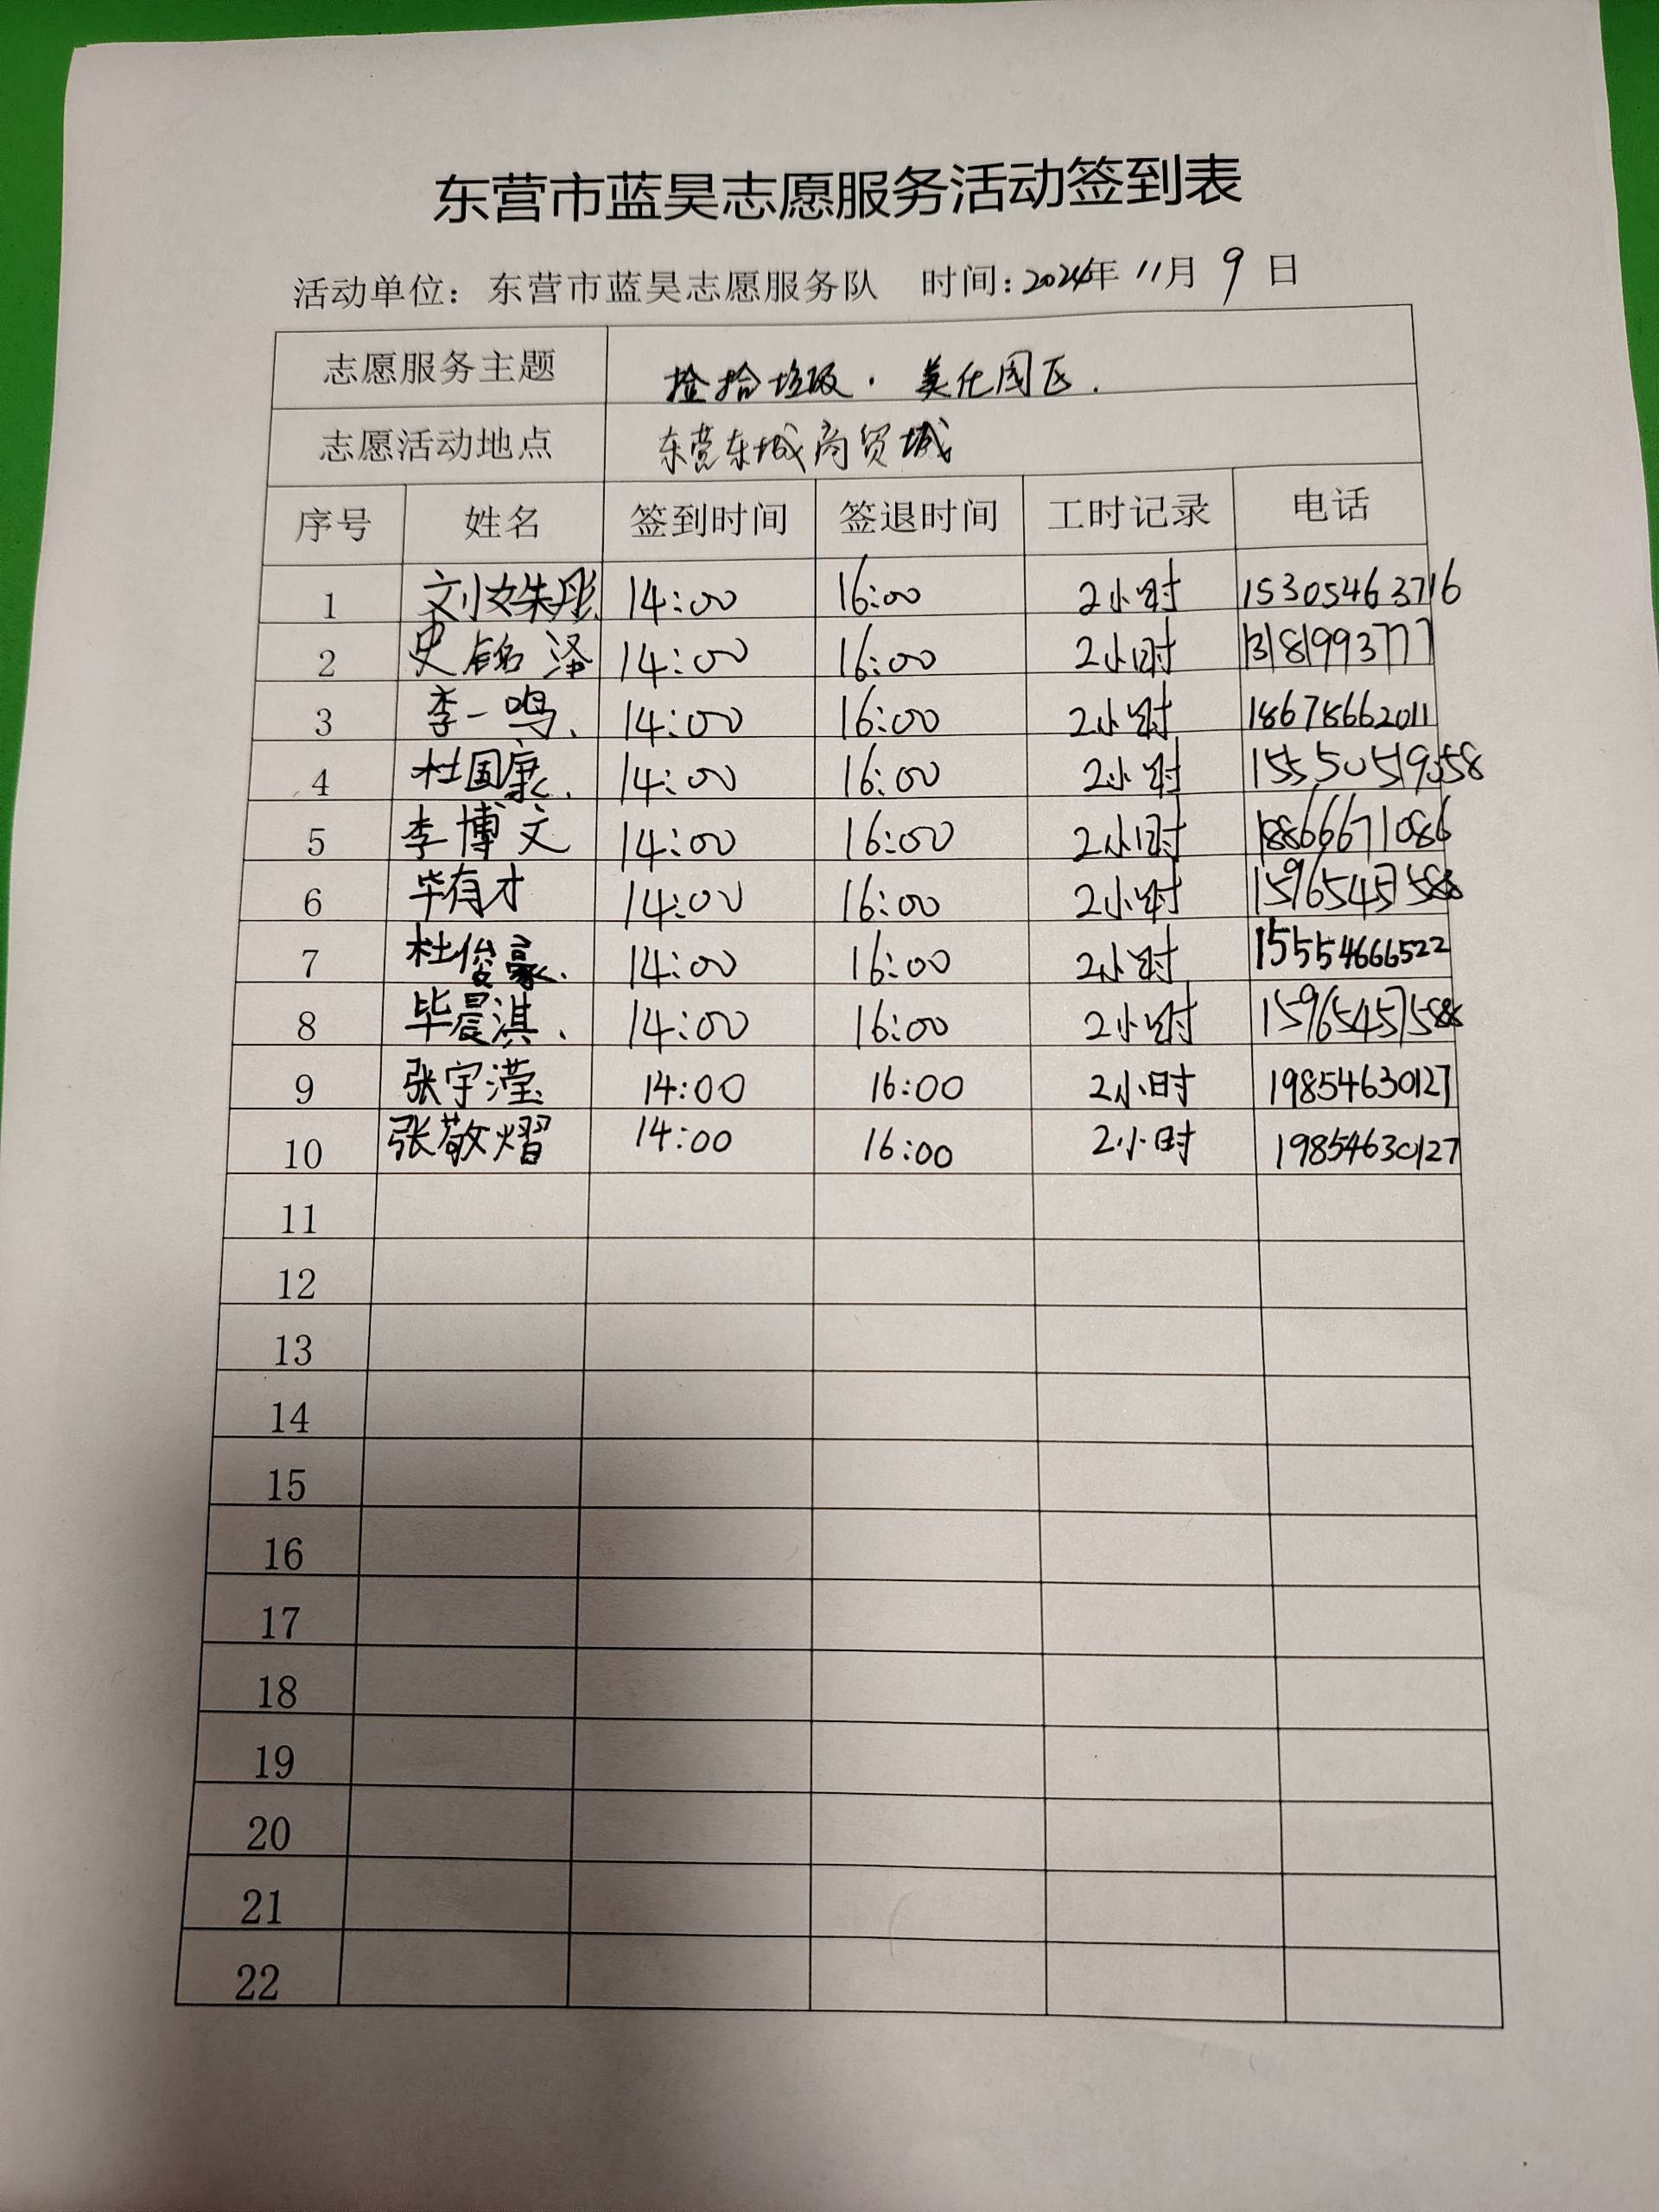 东营市蓝昊志愿服务活动签到表
活动单位：东营市蓝昊志愿服务队 时间：2024年 11月 9 日
志愿服务主题 捡拾垃圾.美化园区.
志愿活动地点 东营东城商贸城
序号 姓名 签到时间 签退时间 工时记录 电话
1 刘姝彤 14:00 16:00 2小时 15305463716
2 史铭泽 14:00 16:00 2小时 13181993777
3 李一鸣. 14:00 16:00 2小时 18678662011
4 杜国康. 14:00 16:00 2小时
5 李博文 14:00 16:00 2小时 18866671086
6 毕有才 14:00 16:00 2小时 15965457588
7 杜俊豪. 14:00 16:00 2小时 15554666522
8 毕晨淇. 14:00 16:00 2小时 15965457588
9 张宇滢 14:00 16:00 2小时 19854630127
10 张敬熠 14:00 16:00 2小时 19854630127
11
12
13
14
15
16
17
18
19
20
21
22